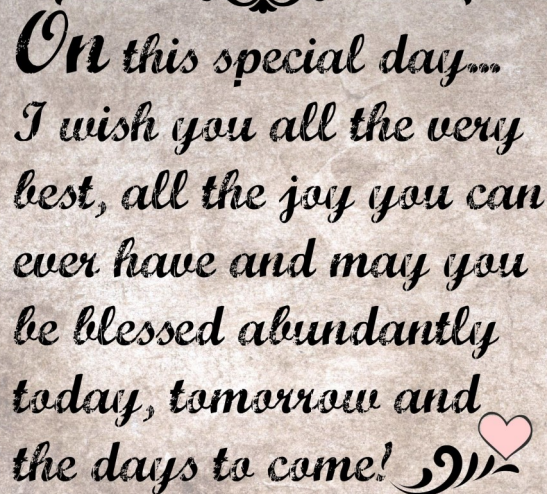 On this special day...
I wish you all the very
best, all the joy you can
ever have and may you
be blessed abundantly
today, tomorrow and
the days to come!